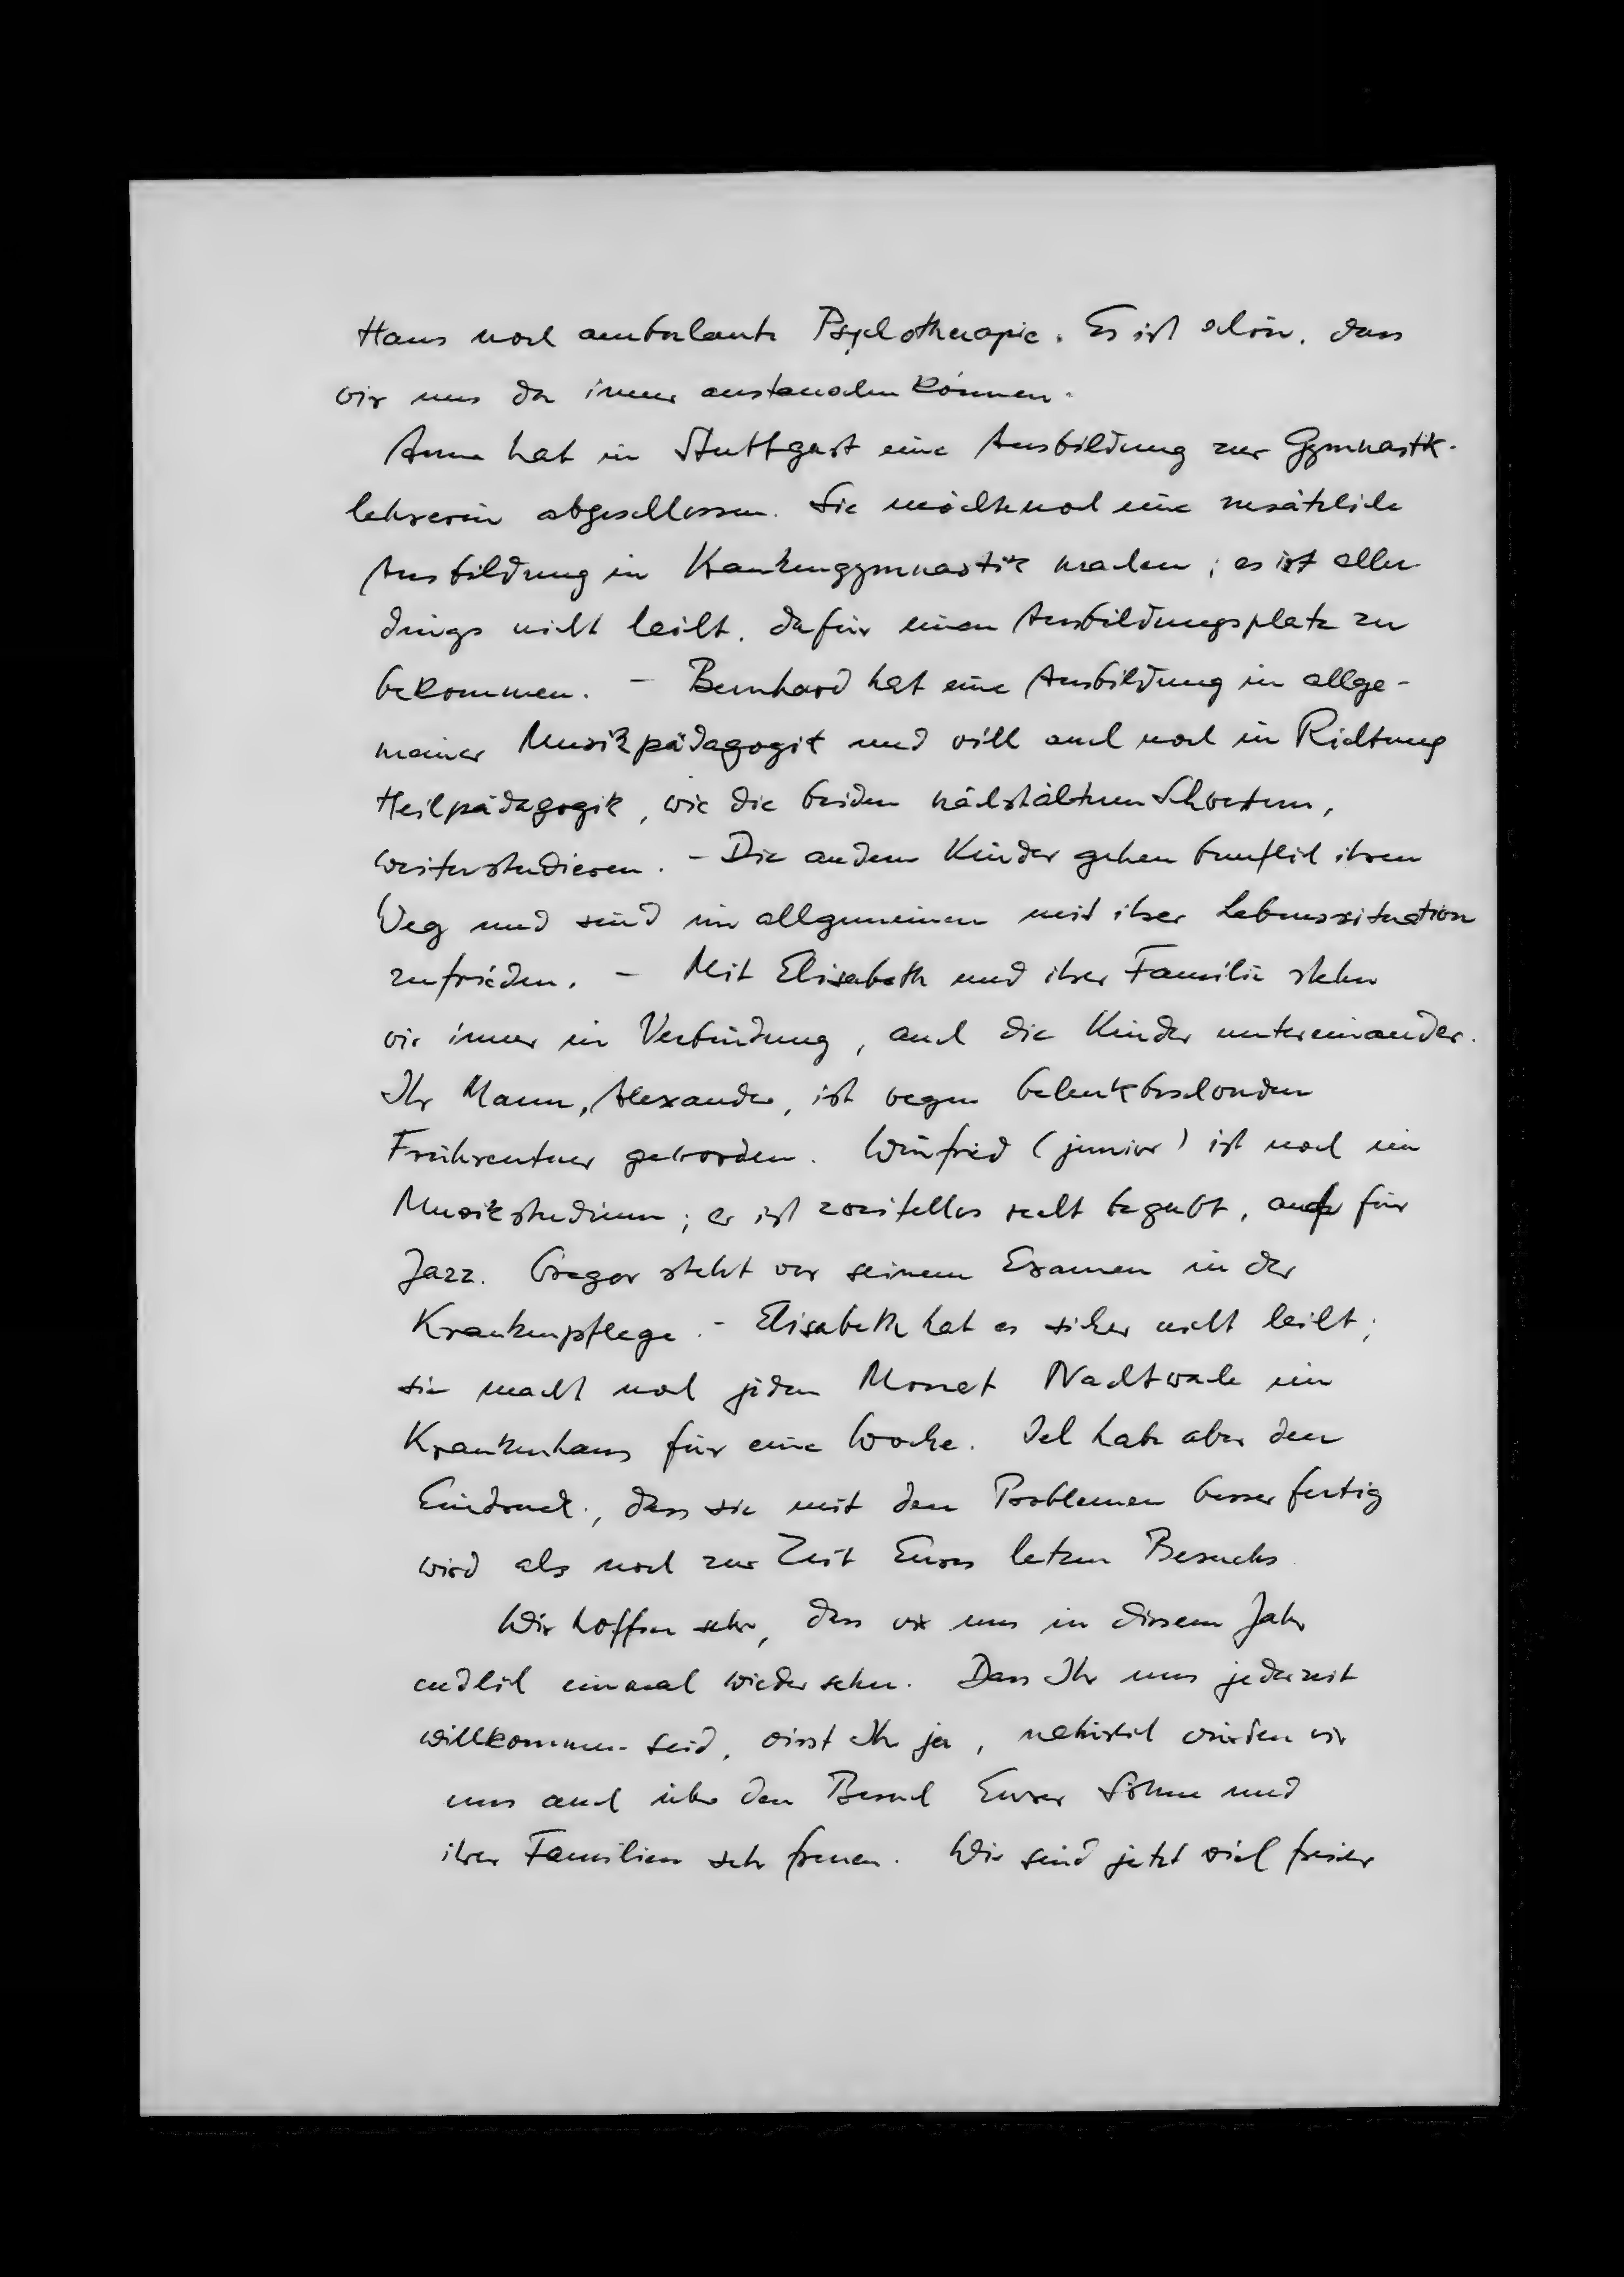 Haus noch ambulante Psychotherapie. Es ist schön, dass
wir uns da immer austauschen können.
Anne hat in Stuttgart eine Ausbildung zur Gymnastik-
lehrerin abgeschlossen. Sie möchte noch eine zusätzliche
Ausbildung in Krankengymnastik machen; es ist aller-
dings nicht leicht, dafür einen Ausbildungsplatz zu
bekommen. - Bernhard hat eine Ausbildung in allge-
meiner Musikpädagogik und will auch noch in Richtung
Heilpädagogik, wie die beiden nächstälteren Schwestern,
weiterstudieren. - Die andern Kinder gehen beruflich ihren
Weg und sind im allgemeinen mit ihrer Lebenssituation
zufrieden. - Mit Elisabeth und ihrer Familie stehen
wir immer in Verbindung, auch die Kinder untereinander.
Ihr Mann, Alexander, ist wegen Gelenkbeschwerden
Frührentner geworden. Winfried (junior) ist noch im
Musikstudium; er ist zweifellos recht begabt, auch für
Jazz. Gregor steht vor seinem Examen in der
Krankenpflege. - Elisabeth hat es sicher nicht leicht;
sie macht noch jeden Monat Nachtwache im
Krankenhaus für eine Woche. Ich habe aber den
Eindruck, dass sie mit den Problemen besser fertig
wird als noch zur Zeit Eures letzten Besuchs.
Wir hoffen sehr, dass wir uns in diesem Jahr
endlich einmal wiedersehen. Dass Ihr uns jederzeit
willkommen seid, wisst Ihr ja, natürlich würden wir
uns auch über den Besuch Eurer Söhne und
ihrer Familien sehr freuen. Wir sind jetzt viel freier